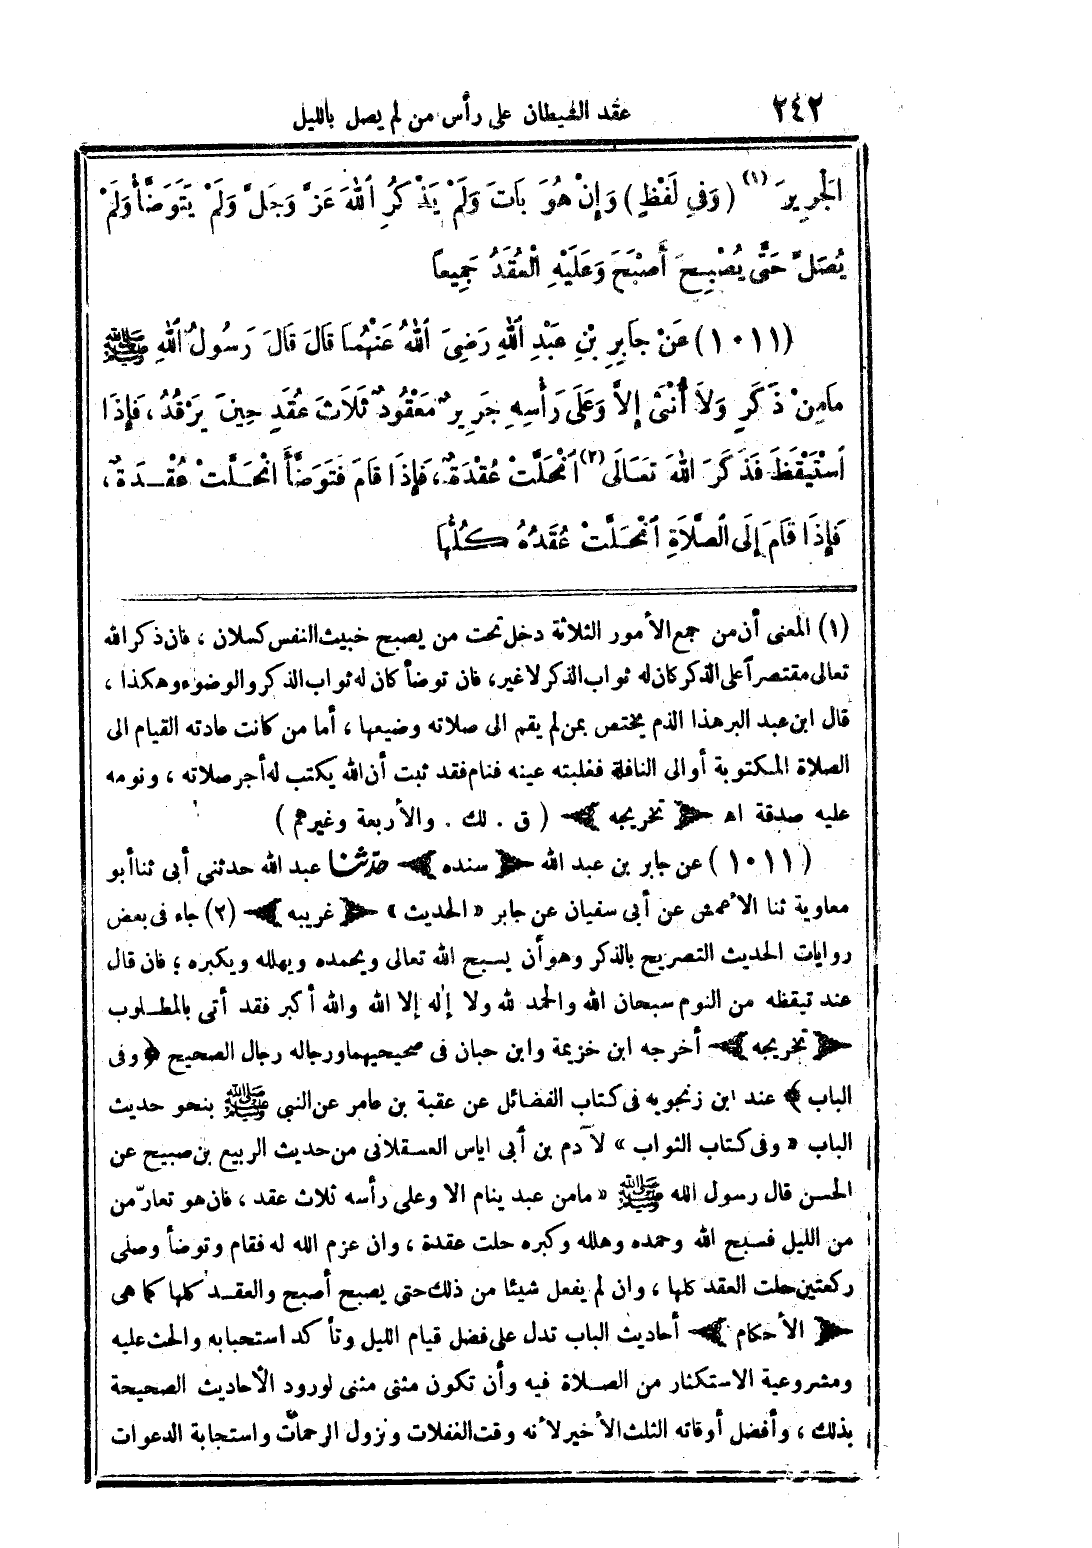 ٢٤٢ عقد الشيطان على رأس من لم يصل بالليل
الْجَرِيرَ (١) (وَفِي لَفْظٍ) وَإِنْ هُوَ بَاتَ وَلَمْ يَذْكُرِ اللهَ عَزَّ وَجَلَّ وَلَمْ يَتَوَضَّأْ وَلَمْ
يُصَلِّ حَتَّى يُصْبِحَ أَصْبَحَ وَعَلَيْهِ الْعُقَدُ جَمِيعاً
(١٠١١) عَنْ جَابِرِ بْنِ عَبْدِ اللهِ رَضِيَ اللهُ عَنْهُمَا قَالَ قَالَ رَسُولُ اللهِ ﷺ
مَامِنْ ذَكَرٍ وَلاَ أُنْثَى إِلاَّ وَعَلَى رَأْسِهِ جَرِيرٌ مَعْقُودٌ ثَلاَثَ عُقَدٍ حِينَ يَرْقُدُ، فَإِذَا
اسْتَيْقَظَ فَذَكَرَ اللهَ تَعَالَى (٢) انْحَلَّتْ عُقْدَةٌ، فَإِذَا قَامَ فَتَوَضَّأَ انْحَلَّتْ عُقْدَةٌ،
فَإِذَا قَامَ إِلَى الصَّلاَةِ انْحَلَّتْ عُقَدُهُ كُلُّهَا
(١) المعنى أن من جمع الأمور الثلاثة دخل تحت من يصبح خبيث النفس كسلان ، فان ذكر الله
تعالى مقتصراً على الذكر كان له ثواب الذكر لا غير، فان توضأ كان له ثواب الذكر والوضوء وهكذا ،
قال ابن عبد البر هذا الذم يختص بمن لم يقم الى صلاته وضيعها ، أما من كانت عادته القيام الى
الصلاة المكتوبة أو الى النافلة فغلبته عينه فنام فقد ثبت أن الله يكتب له أجر صلاته ، ونومه
عليه صدقة اهـ ﴿ تخريجه ﴾ ( ق . لك . والأربعة وغيرهم )
(١٠١١) عن جابر بن عبد الله ﴿ سنده ﴾ حدثنا عبد الله حدثني أبى ثنا أبو
معاوية ثنا الأعمش عن أبى سفيان عن جابر « الحديث » ﴿ غريبه ﴾ (٢) جاء فى بعض
روايات الحديث التصريح بالذكر وهو أن يسبح الله تعالى ويحمده ويهلله ويكبره ؛ فان قال
عند تيقظه من النوم سبحان الله والحمد لله ولا إله إلا الله والله أكبر فقد أتى بالمطلوب
﴿ تخريجه ﴾ أخرجه ابن خزيمة وابن حبان فى صحيحيهما ورجاله رجال الصحيح ﴿ وفى
الباب ﴾ عند ابن زنجويه فى كتاب الفضائل عن عقبة بن عامر عن النبي ﷺ بنحو حديث
الباب « وفى كتاب الثواب » لآدم بن أبى اياس العسقلانى من حديث الربيع بن صبيح عن
الحسن قال رسول الله ﷺ « مامن عبد ينام الا وعلى رأسه ثلاث عقد ، فان هو تعارّ من
من الليل فسبح الله وحمده وهلله وكبره حلت عقدة ، وان عزم الله له فقام وتوضأ وصلى
ركعتين حلت العقد كلها ، وان لم يفعل شيئا من ذلك حتى يصبح أصبح والعقد كلها كما هى
﴿ الأحكام ﴾ أحاديث الباب تدل على فضل قيام الليل وتأكد استحبابه والحث عليه
ومشروعية الاستكثار من الصلاة فيه وأن تكون مثنى مثنى لورود الأحاديث الصحيحة
بذلك ، وأفضل أوقاته الثلث الأخير لأنه وقت الغفلات ونزول الرحمات واستجابة الدعوات